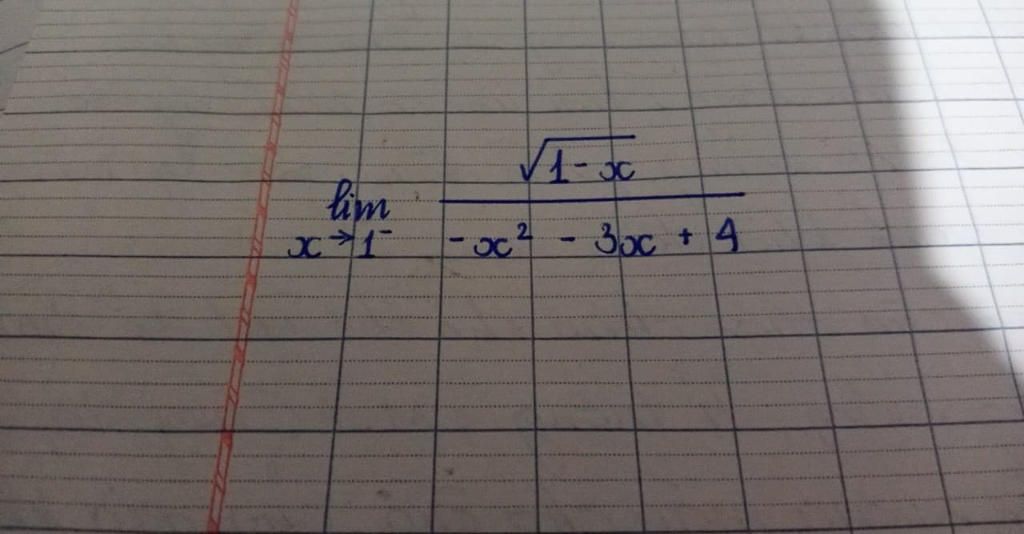 lim x→1⁻ √(1 - x) / (-x² - 3x + 4)